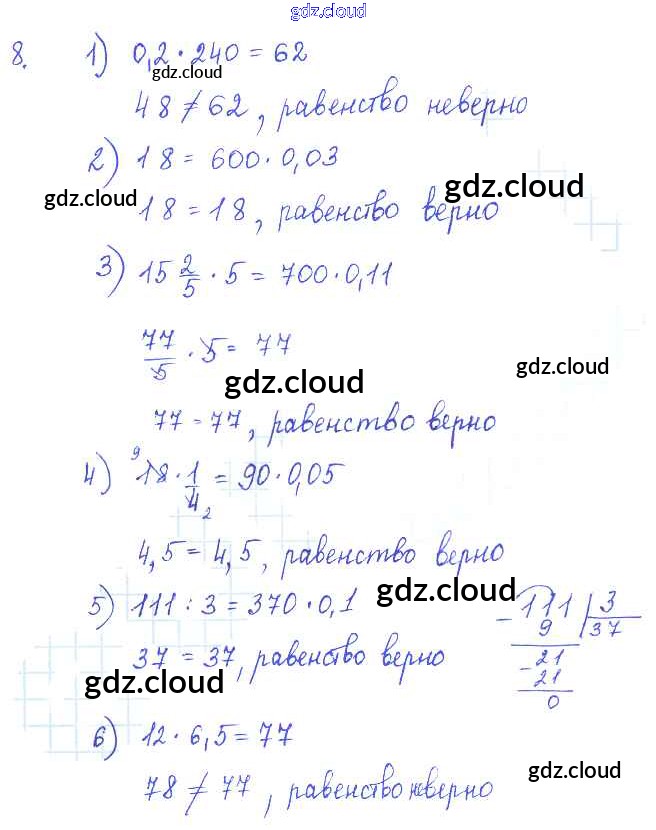 gdz.cloud
8. 1) 0,2 · 240 = 62
gdz.cloud
48 ≠ 62, равенство неверно
2) 18 = 600 · 0,03
gdz.cloud gdz.cloud
18 = 18, равенство верно
3) 15 2/5 · 5 = 700 · 0,11
77/5 · 5 = 77
gdz.cloud
gdz.cloud
77 = 77, равенство верно
4) 9 18 · 1/4 2 = 90 · 0,05
4,5 = 4,5, равенство верно
gdz.cloud
5) 111 : 3 = 370 · 0,1
- 111 | 3
9 37
37 = 37, равенство верно
- 21
21
0
gdz.cloud
6) 12 · 6,5 = 77
gdz.cloud
78 ≠ 77, равенство неверно